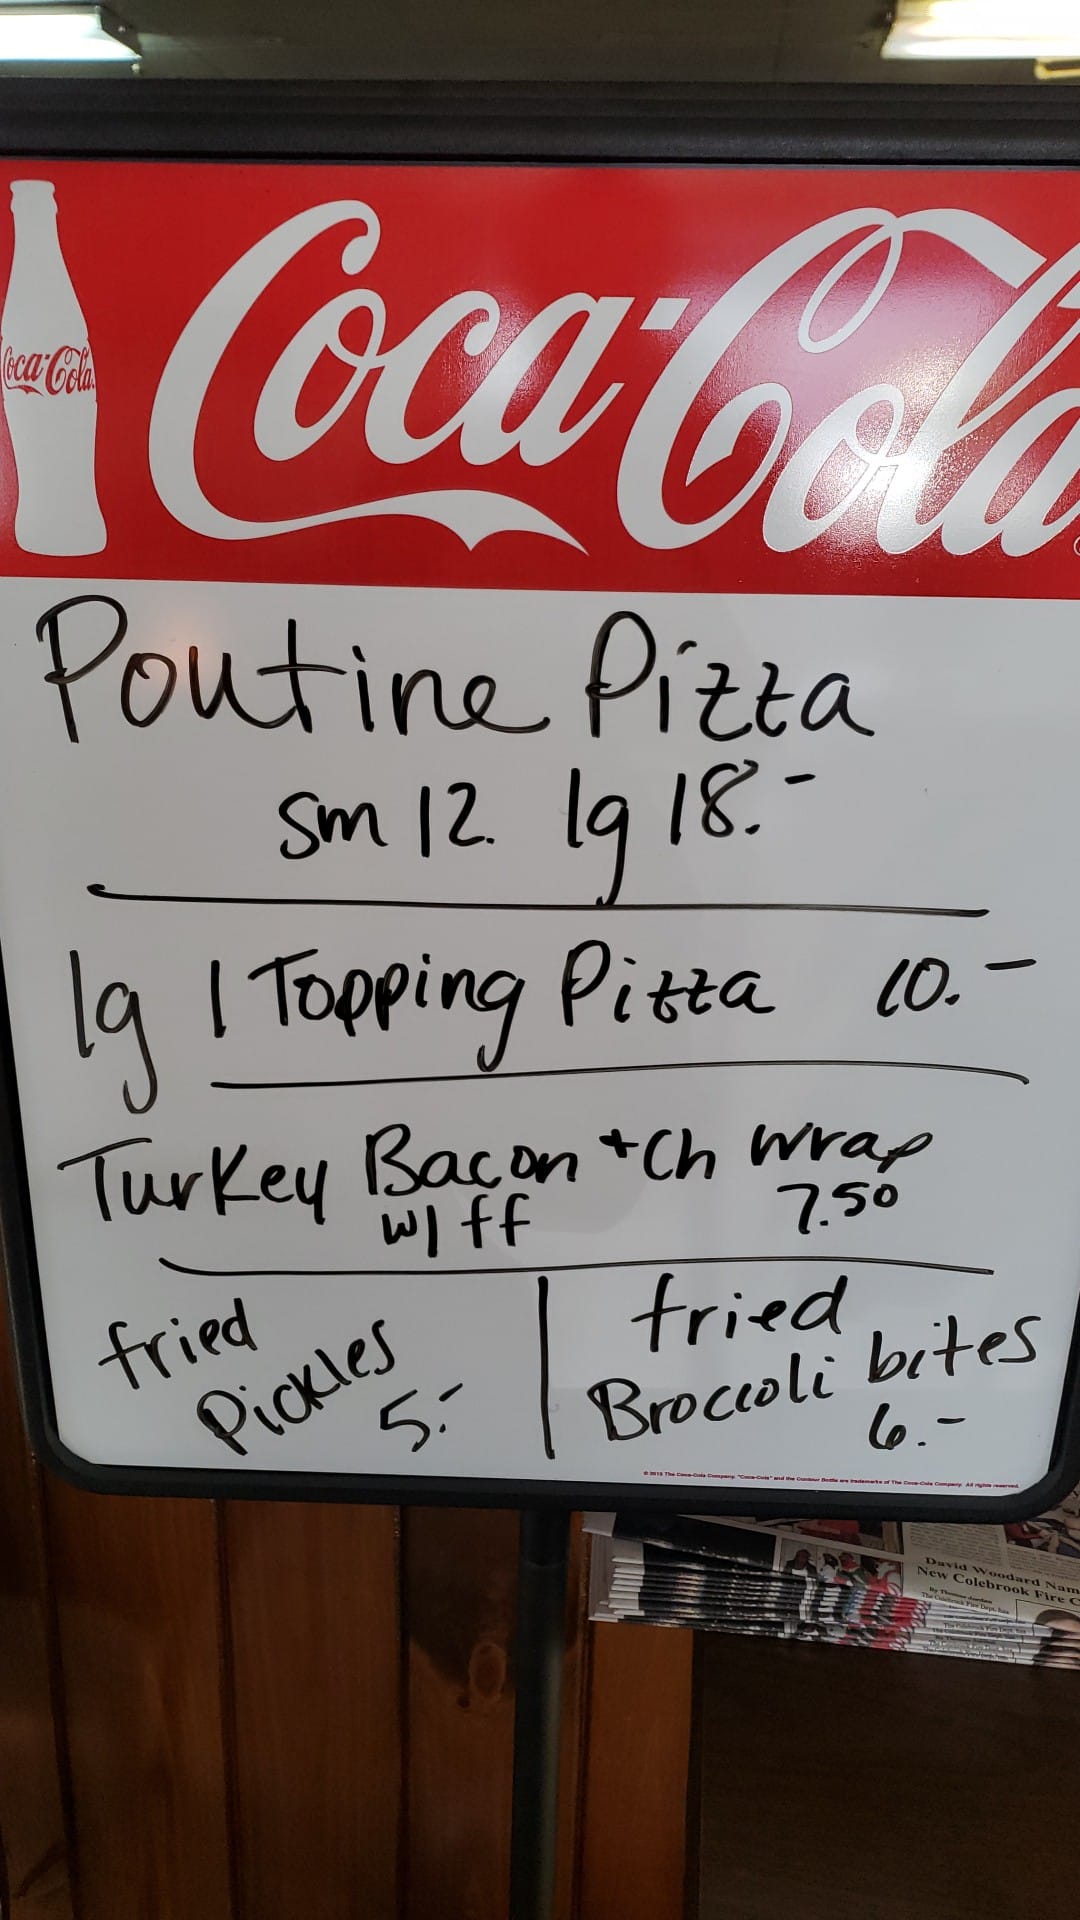 Coca-Cola
Coca-Cola
Poutine Pizza
sm 12. lg 18.-
lg 1 Topping Pizza 10.-
Turkey Bacon + Ch Wrap
w/ ff 7.50
fried
Pickles
5.-
fried
Broccoli bites
6.-
© 2015 The Coca-Cola Company. "Coca-Cola" and the Contour Bottle are trademarks of The Coca-Cola Company. All rights reserved.
David Woodard Nam
New Colebrook Fire C